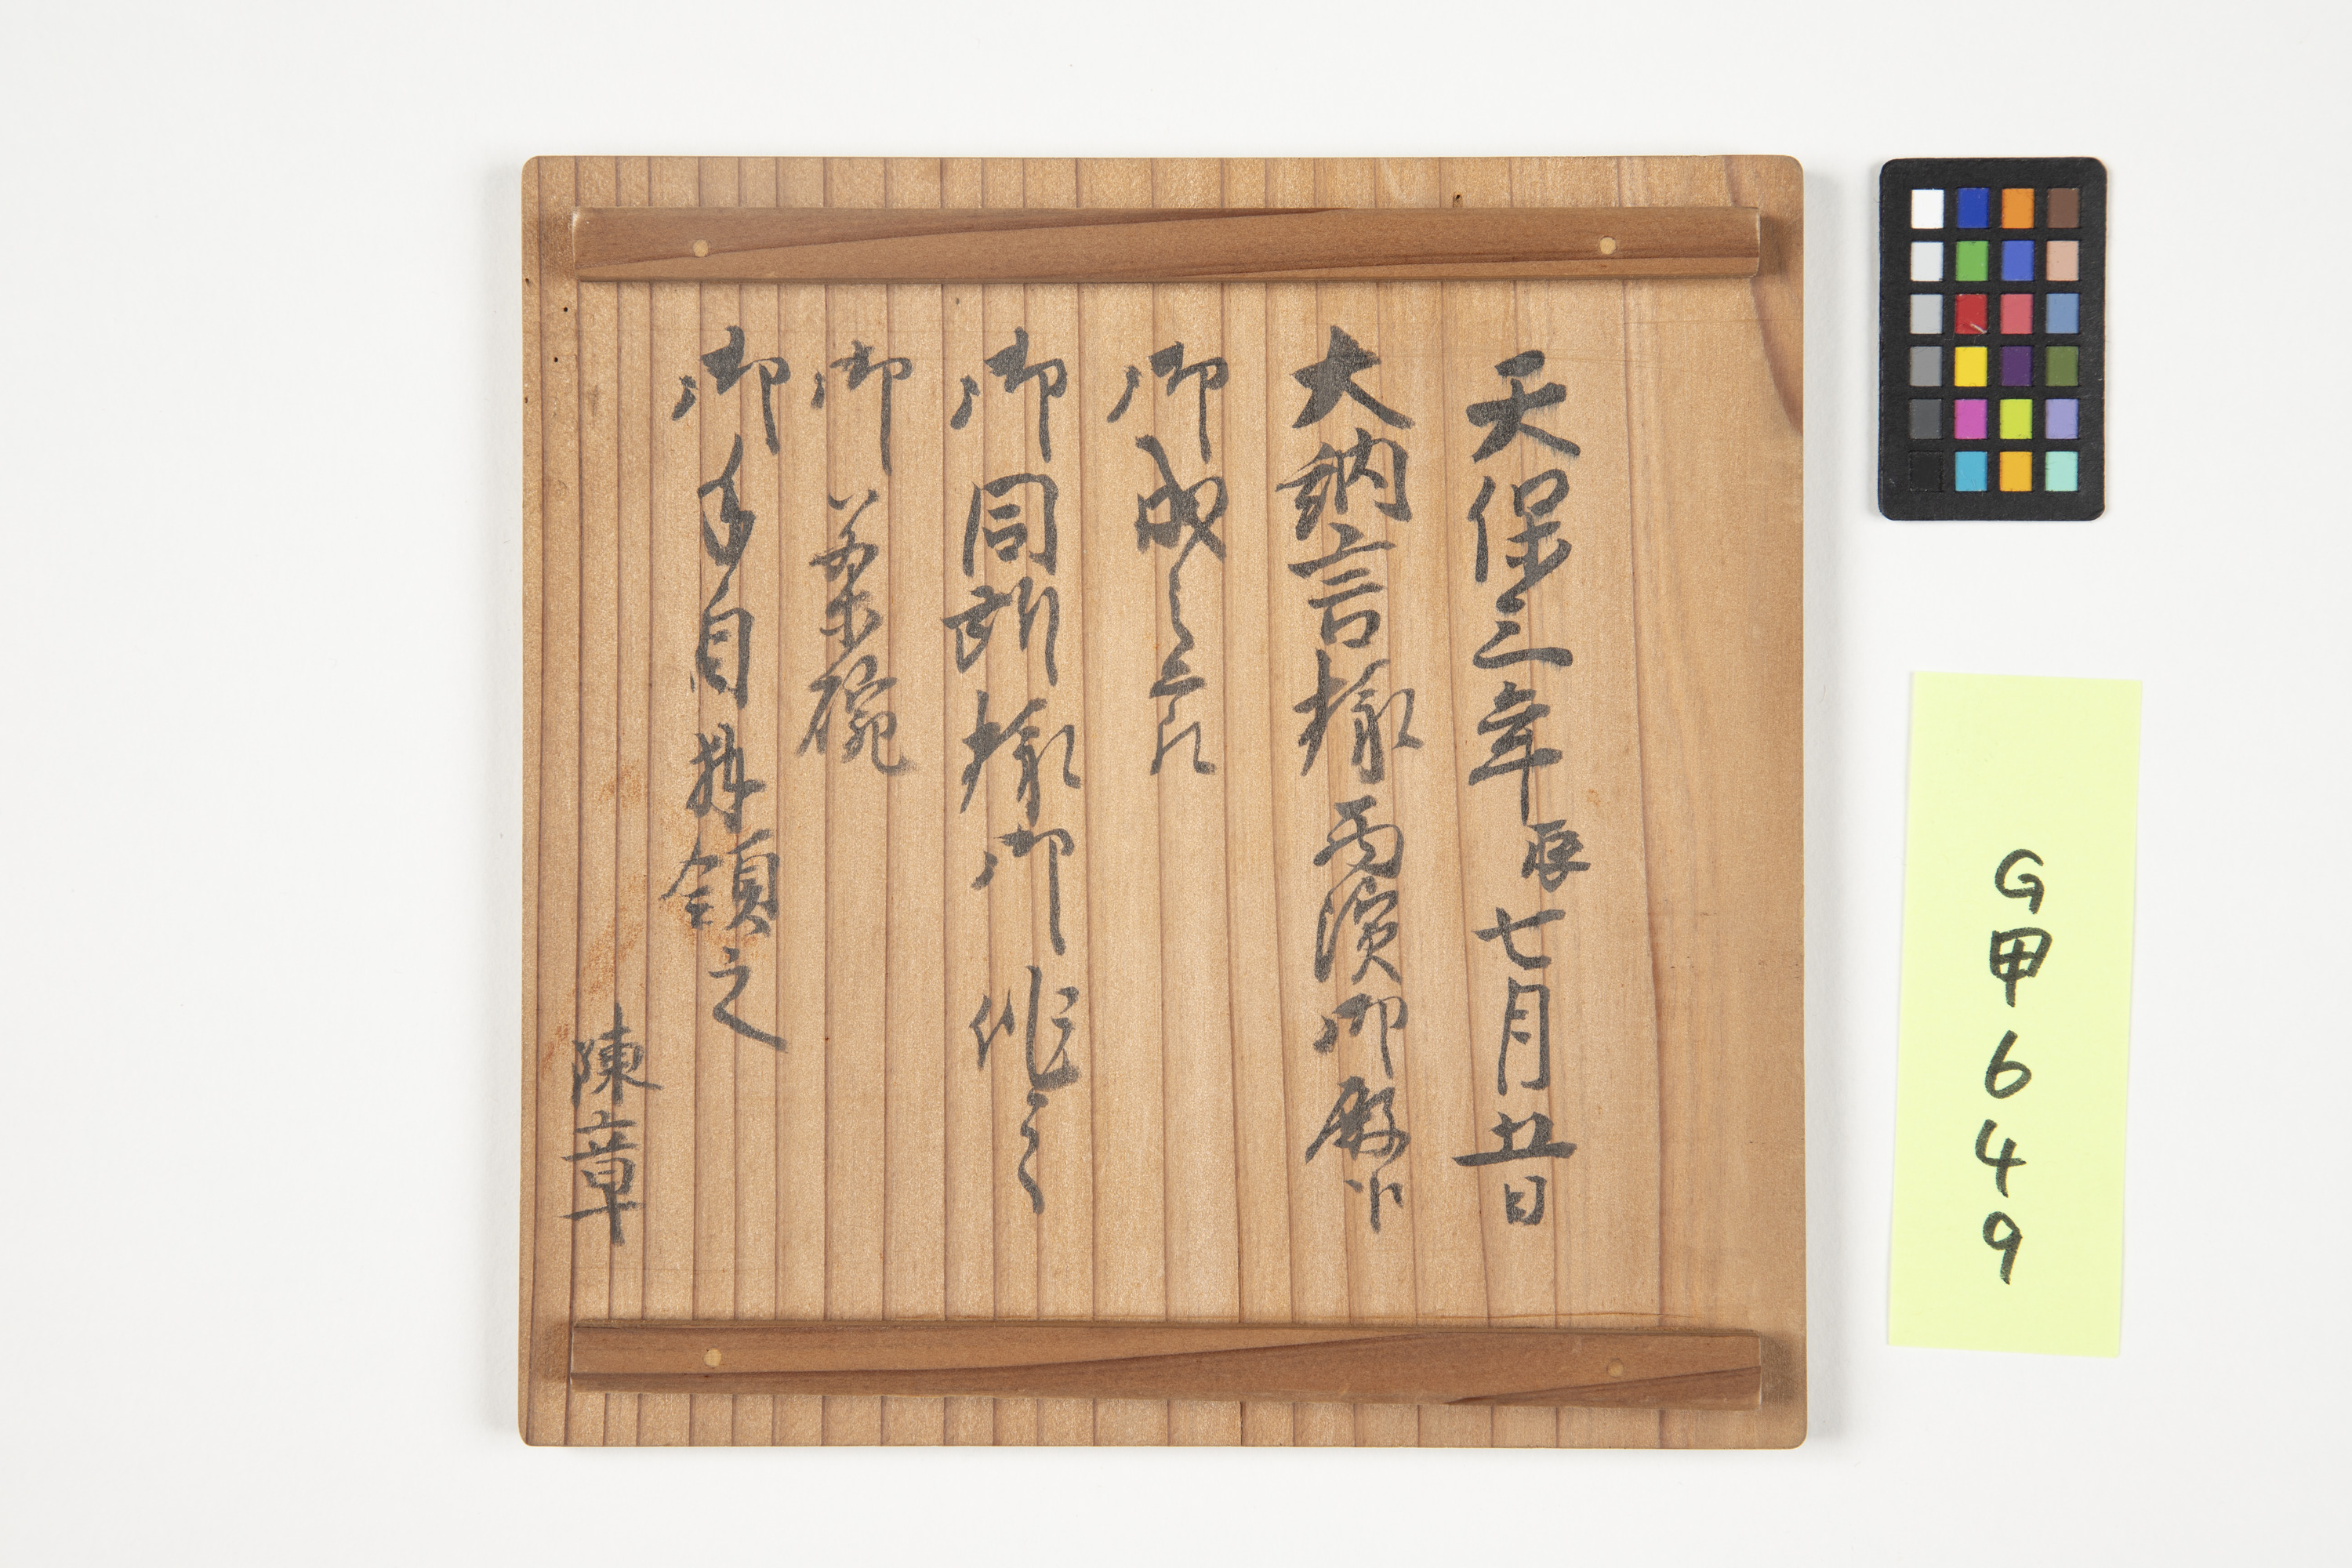 天保三年辰七月廿日
大納言様西濱御殿江
御成之節
御同所様御作之
御茶碗
御手自拝領之
陳章
G甲6649